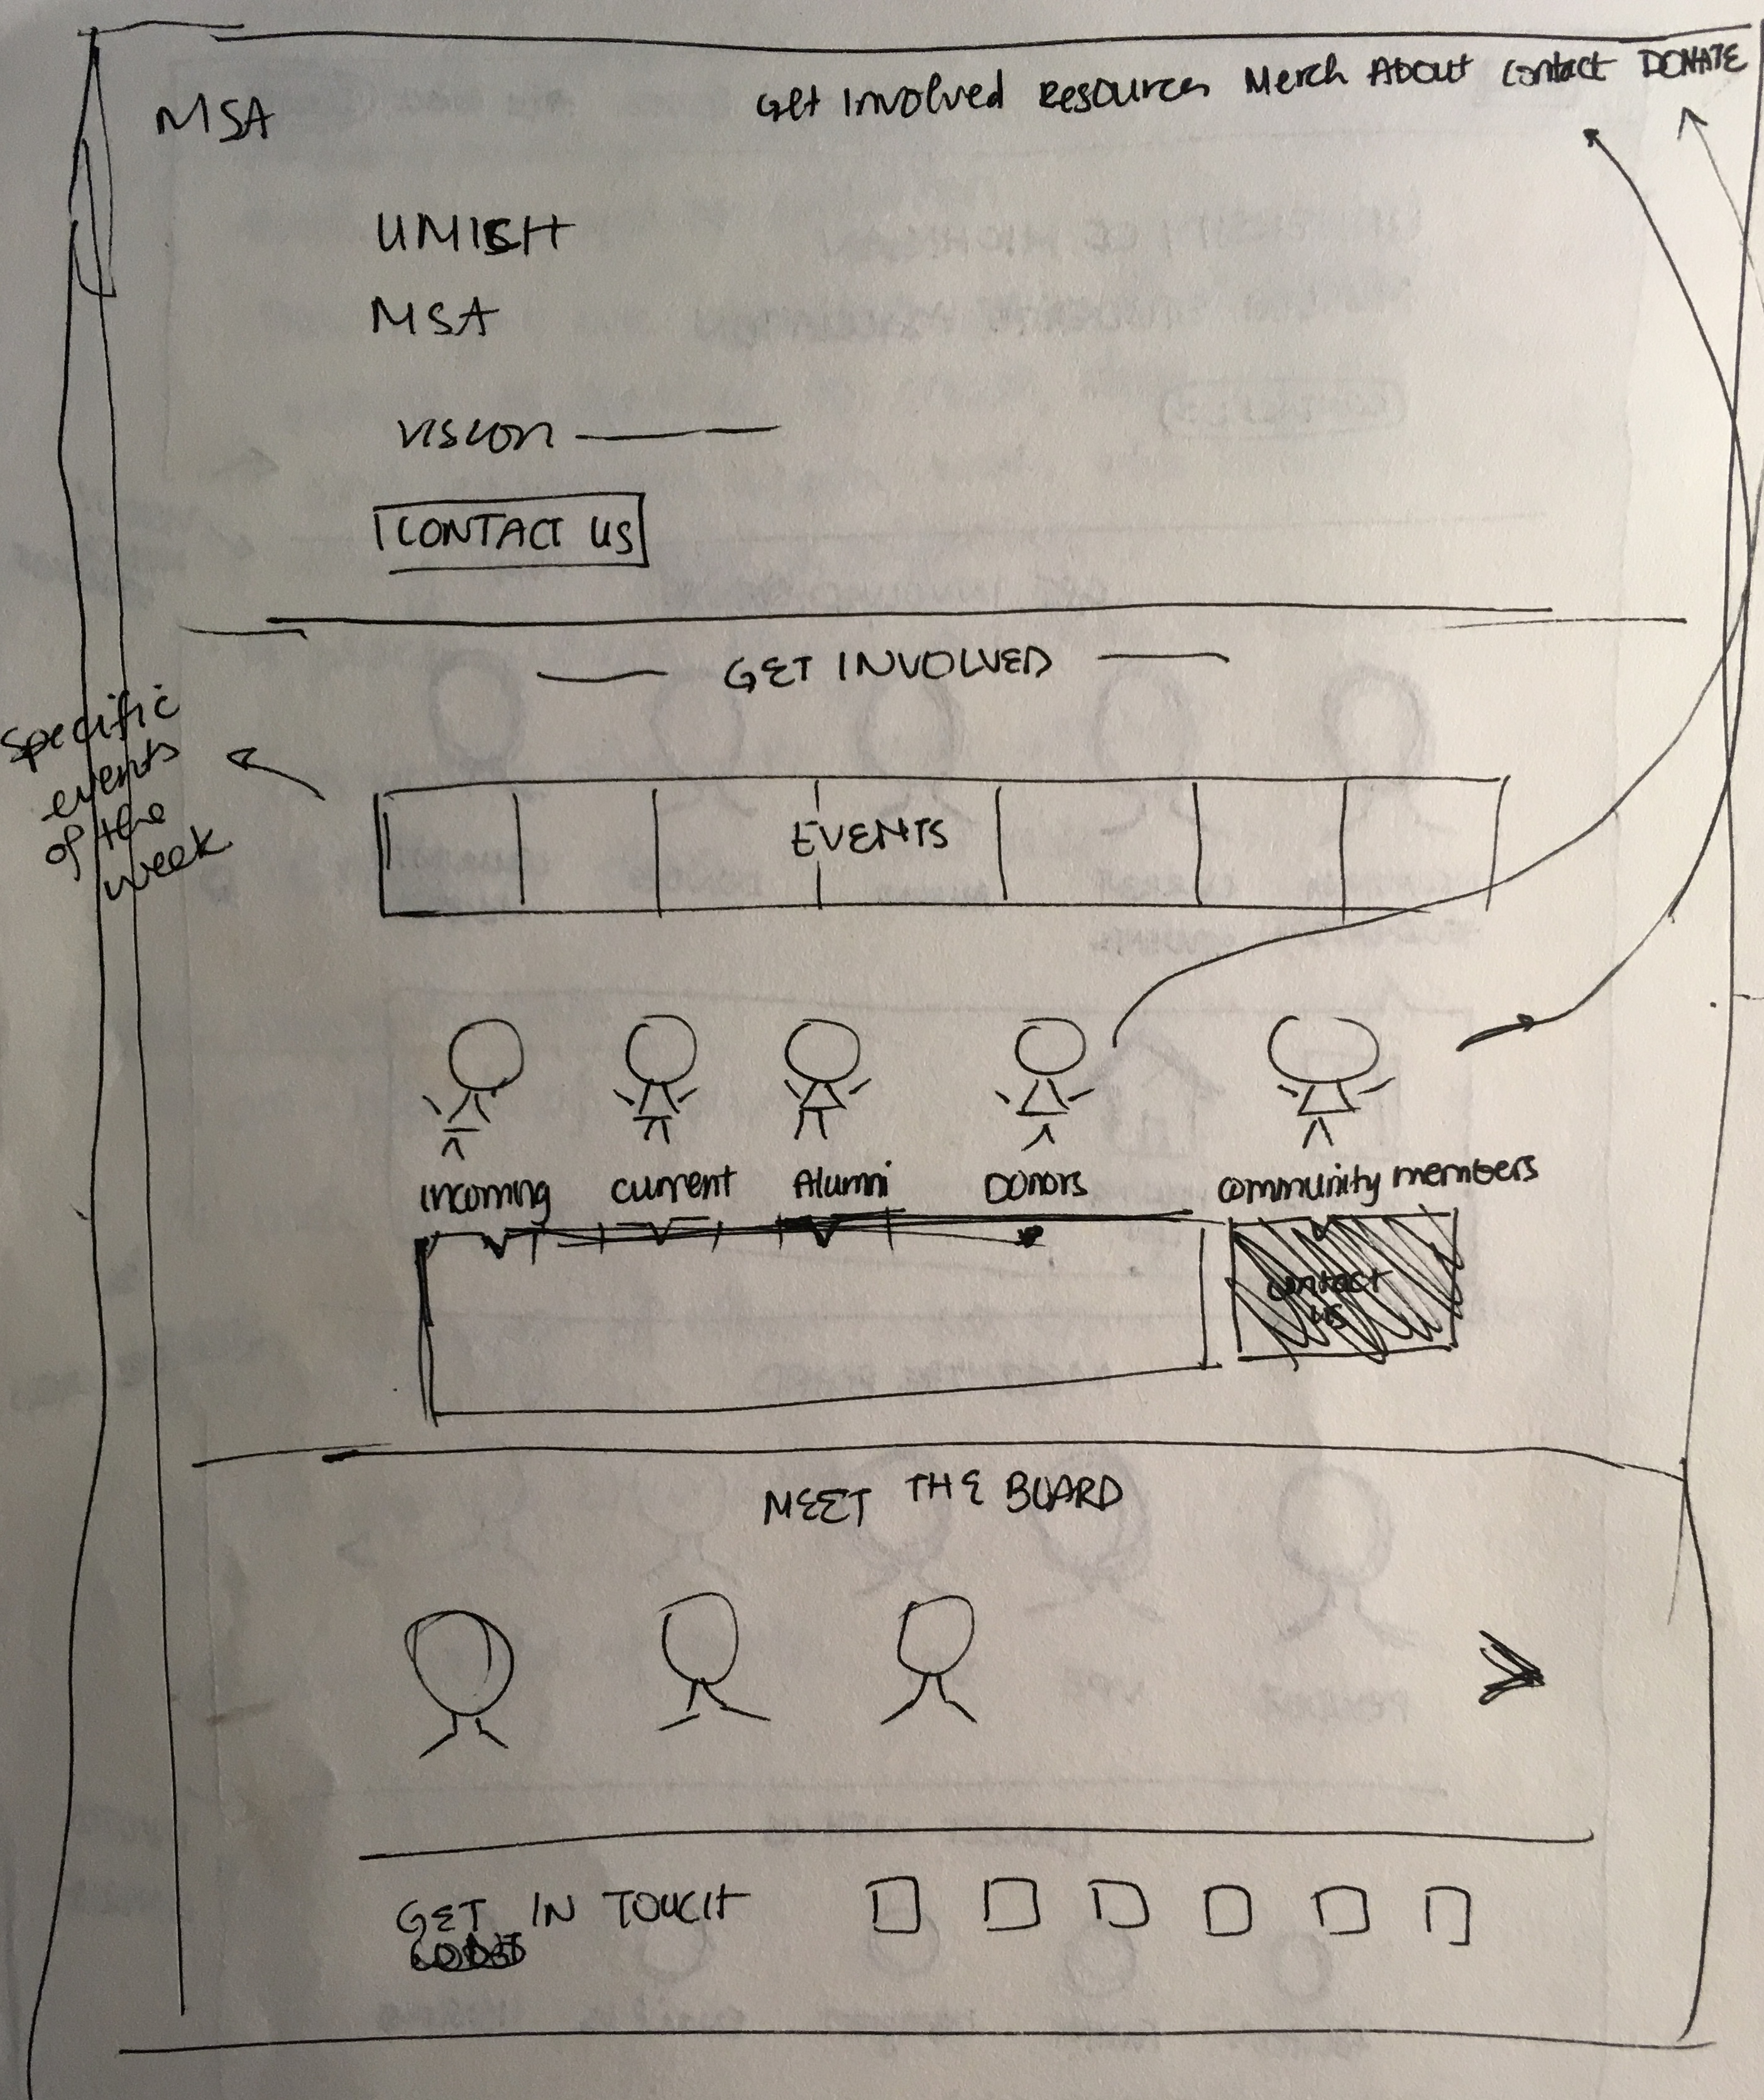 MSA
Get Involved Resources Merch About Contact DONATE
UMICH
MSA
VISION
CONTACT US
GET INVOLVED
Specific
events
of the
week
EVENTS
incoming current Alumni Donors community members
contact
us
MEET THE BOARD
GET IN TOUCH